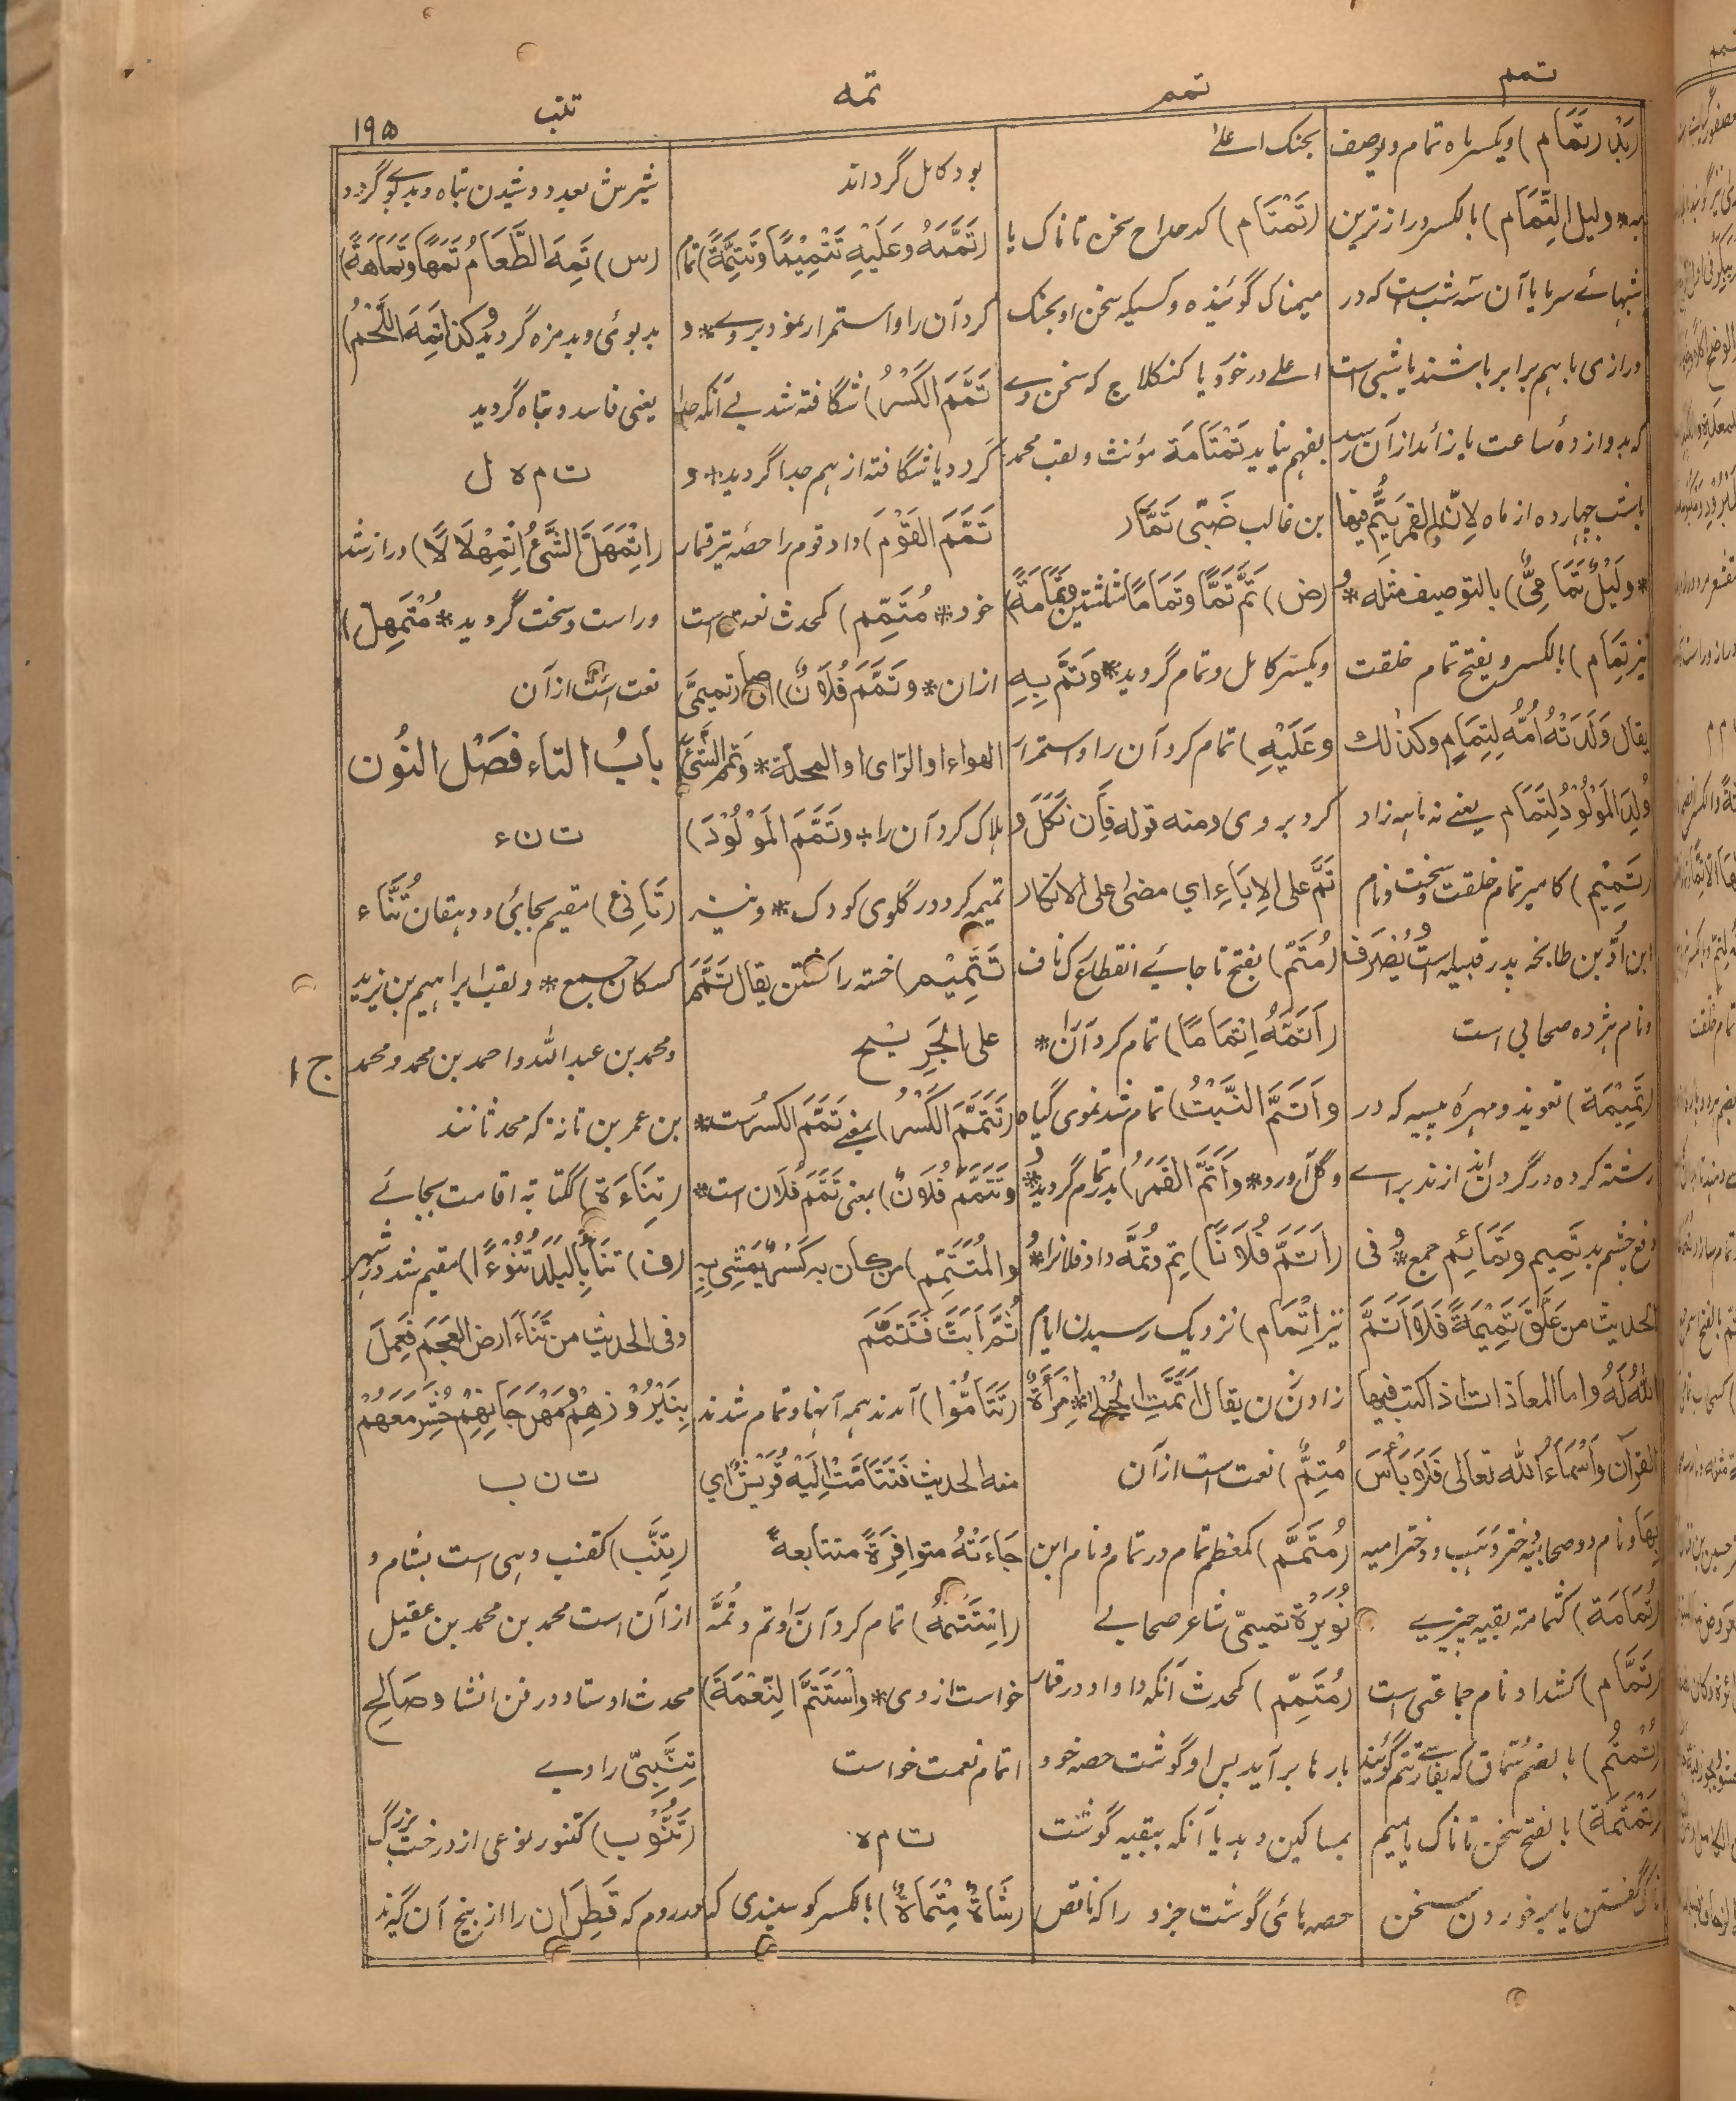 تمم
تمم
تمه
تنب
۱۹۵
(بَدْر تَمَام) ویکسر ماه تمام ویوصف
به * ولیل التِّمَام) بالکسر دراز ترین
شبهائے سرما یا آن سه شب است که در
درازی باهم برابر باشند یا شبی است
که بدوازده ساعت یا زائد از آن رسد
یا شب چهارده از ماه لِاَنّ القمر یَتِمُّ فیها
* ولَیْلٌ تَمَامِیٌّ) بالتوصیف مثله * و
نیز تِمَام) بالکسر و بفتح تمام خلقت
یقال وَلَدَتْهُ اُمُّهُ لِتِمَامٍ وکذٰلك
وُلِدَ المَوْلُوْدُ لِتَمَام یعنے نه ماهه زاد
(تَمِیْم) کامیر تمام خلقت و سخت و نام
ابن اُدّ بن طابخه پدر قبیله است یُصْرَف
و نام هژده صحابی است
(تَمِیْمَة) تعویذ و مهرهٔ پیسه که در
رشته کرده در گردن اندازند براے
دفع چشم بد تَمِیم وتَمَائِم جمع * و فی
الحدیث من عَلَّقَ تَمِیْمَةً فَلَا اَتَمَّ
اللهُ لَهُ واما المعاذات اذا کتب فیها
القرآن وَاَسْمَاءُ الله تعالی فَلَا بَأْسَ
بِهَا و نام دو صحابیه دختر وَهَب و دختر امیه
(تُمَامَة) کثمامة بقیه چیزے
(تَمَّام) کشداد نام جماعتی است
(تُمْتُم) بالضم سُمّاق که بفارسے تتم گویند
(تَمْتَمَة) بالفتح سخن تا ناک یا میم
ناک گفتن یا سر خوردن سخن
بجنک اعلےٰ
(تَمْتَام) کدحداح سخن تا ناک یا
میمناک گوینده و کسیکه سخن او بجنک
اعلے در خورد یا کنکلاج که سخن وے
بفهم نیاید تَمْتَامَة مؤنث و لقب محمد
بن غالب ضَبّی تَمَّار
(ض) تَمَّ تَمًّا وتَمَامًا مثلثتین وتَمَامَةً
ویکسر کامل و تمام گردید * وَتَمَّ بِهِ
وعَلَیْهِ) تمام کرد آن را و استمرار
کرد بروی و منه قوله فَاِن نَکَلَ و
تَمَّ علی الاِبَاءِ ای مضیٰ علی الانکار
(مُتَمّ) بفتح تا جائے انقطاع رگ ناف
(اَتَمَّهُ اِتمَامًا) تمام کرد آن را *
واَتَمَّ النَّبْتُ) تمام شد نموی گیاه
و گل آورد * وَاَتَمَّ القَمَرُ) بدر تمام گردید *
(اَتَمَّ فُلَانًا) تِمّ و تُمَّه داد فلان را * و
نیز اِتْمَام) نزدیک رسیدن ایام
زادن زن یقال اَتَمَّتِ الحُبْلیٰ * اِمْرَأَةٌ
مُتِمٌّ) نعت است از آن
(مُتَمَّم) کمعظم تمام در تمام و نام ابن
نُوَیْرَة تمیمی شاعر صحابے
(مُتَمِّم) کمحدث آنکه داو او در قمار
بارها بر آید پس او گوشت حصه خود
بمساکین دهد یا آنکه ببقیه گوشت
حصه هائی گوشت جزور را که ناقص
بود کامل گرداند
(تَمَّمَهُ وعَلَیْهِ تَتْمِیْمًا وتَتِمَّةً) تمام
کرد آن را و استمرار نمود بروے * و
تَمَّمَ الکَسْرُ) شگافته شد بے آنکه جدا
گردد یا شگافته از هم جدا گردید * و
تَمَّمَ القَوْمَ) داد قوم را حصه تیر قمار
خود * مُتَمِّم) کمحدث نعت است
ازان * وتَمَّمَ فُلَانٌ) ای صار تمیمیَّ
الهواء او الرّای او المحلّة * وتمّم الشّیَٔ
هلاک کرد آن را * وتَمَّمَ المَوْلُوْدَ)
تمیمه کرد در گلوی کودک * و نیز
تَتْمِیْم) خسته را کشتن یقال تَمَّمَ
علی الجَرِیْح
(تَتَمَّمَ الکَسْرُ) بمعنے تَمَّمَ الکسرُ ست *
وتَتَمَّمَ فُلَانٌ) بمعنی تَمَّمَ فُلَان است *
والمُتَتَمِّم) من کان به کَسْرٌ یَمْشِی بِهِ
ثُمَّ اَبَتَّ فَتَتَمَّمَ
(تَتَامُّوْا) آمدند همه آنها و تمام شدند
منه الحدیث فَتَتَامَّتْ اِلَیْهِ قُرَیْشٌ ای
جَاءَتْهُ متوافِرَةً متتابعةً
(اِسْتَتَمَّهُ) تمام کرد آن را و تم و تُمَّه
خواست از وی * واسْتَتَمَّ النِّعْمَةَ)
اتمام نعمت خواست
ت م ہ
(شَاةٌ مِتْمَاهٌ) بالکسر گوسپندی که
شیرش بعد دوشیدن تباه و بدبو گردد
(س) تَمِهَ الطَّعَامُ تَمَهًا وتَمَاهَةً)
بدبوئی و بدمزه گردید * وکذا تَمِهَ اللَّحْمُ)
یعنی فاسد و تباه گردید
ت م ہ ل
(اِتْمَهَلَّ الشَّیْءُ اِتْمِهْلَالًا) دراز شد
و راست و سخت گردید * مُتْمَهِلّ)
نعت است از آن
بابُ التاء فَصْل النُون
ت ن ء
(تَانِیٔ) مقیم بجائی و دهقان تُنَّاء
کسکان جمع * و لقب ابراهیم بن یزید
و محمد بن عبد الله و احمد بن محمد و محمد
بن عمر بن تانة که محدثانند
(تِنَاءَة) ککتابة اقامت بجائے
(ف) تَنَأَ بِالبَلَدِ تُنُوْءًا) مقیم شد در شهر
و فی الحدیث من تَنَاءَ ارض العَجَم فعَمِلَ
بِنَیْرُوْزِهِمْ ومِهْرَجَانِهِمْ حُشِرَ مَعَهُمْ
ت ن ب
(تِنَّب) کقنب دهی است بشام و
از آن است محمد بن محمد بن عقیل
محدث اوستاد در فن انشا و صَالِح
تِنَّبِیّ راوے
(تَنُّوْب) کتنور نوعی از درخت بزرگ
در روم که قَطِرَان را از بیخ آن گیرند
ج ۱